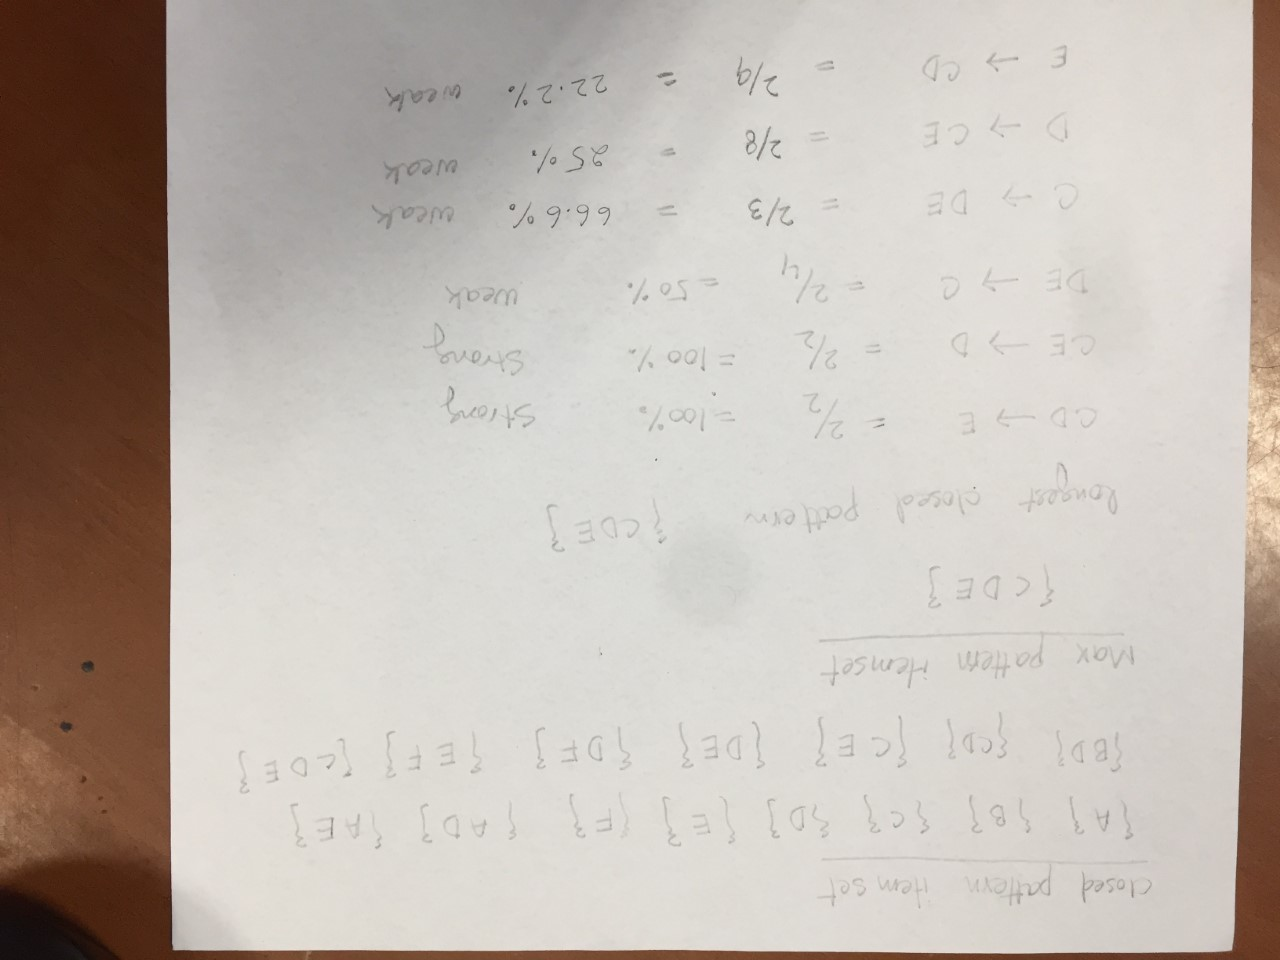 closed pattern itemset
{A} {B} {C} {D} {E} {F} {AD} {AE}
{BD} {CD} {CE} {DE} {DF} {EF} {CDE}
Max pattern itemset
{CDE}
longest closed pattern {CDE}
CD → E = 2/2 = 100% Strong
CE → D = 2/2 = 100% Strong
DE → C = 2/4 = 50% weak
C → DE = 2/3 = 66.6% weak
D → CE = 2/8 = 25% weak
E → CD = 2/9 = 22.2% weak